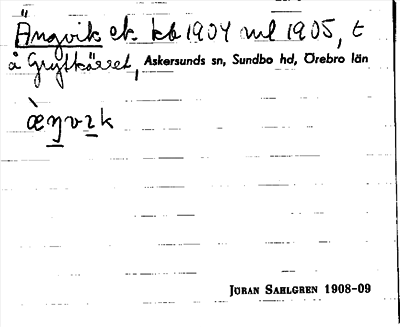 Ängvik ek kb 1904 ml 1905, t
å Grytkärret, Askersunds sn, Sundbo hd, Örebro län
æ̀ŋvɪk
JÖRAN SAHLGREN 1908-09